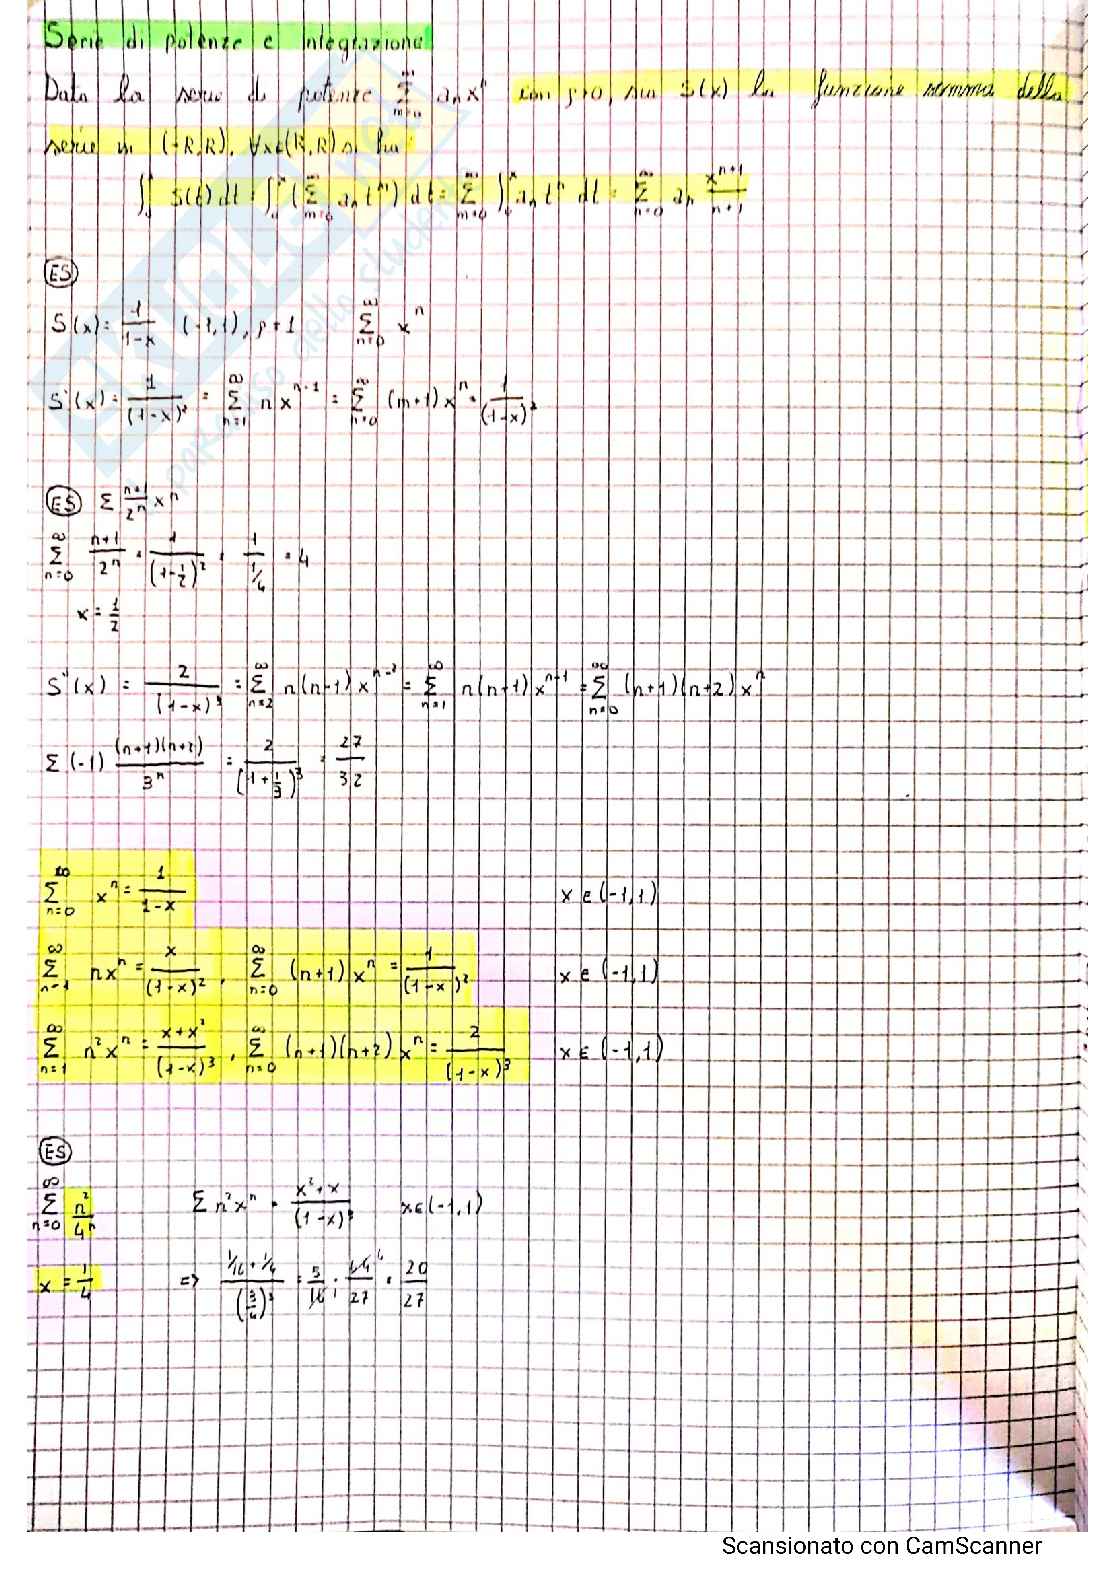 Serie di potenze e integrazione
Data la serie di potenze ∞ Σ n=0 aₙxⁿ con ρ>0, sia S(x) la funzione somma della
serie in (-R,R). ∀x∈(R,R) si ha
∫₀ˣ S(t) dt = ∫₀ˣ (∞ Σ n=0 aₙtⁿ) dt = ∞ Σ n=0 ∫₀ˣ aₙtⁿ dt = ∞ Σ n=0 aₙ xⁿ⁺¹/n+1
ES
S(x) = 1/1-x (-1,1), ρ=1 ∞ Σ n=0 xⁿ
S'(x) = 1/(1-x)² = ∞ Σ n=1 nxⁿ⁻¹ = ∞ Σ n=0 (n+1)xⁿ = 1/(1-x)²
ES Σ n+1/2ⁿ xⁿ
∞ Σ n=0 n+1/2ⁿ = 1/(1-1/2)² = 1/1/4 = 4
x = 1/2
S''(x) = 2/(1-x)³ = ∞ Σ n=2 n(n-1)xⁿ⁻² = ∞ Σ n=1 n(n+1)xⁿ⁺¹ = ∞ Σ n=0 (n+1)(n+2)xⁿ
Σ(-1) (n+1)(n+2)/3ⁿ = 2/(1+1/3)³ = 27/32
∞ Σ n=0 xⁿ = 1/1-x x∈(-1,1)
∞ Σ n=1 nxⁿ = x/(1-x)², ∞ Σ n=0 (n+1)xⁿ = 1/(1-x)² x∈(-1,1)
∞ Σ n=1 n²xⁿ = x+x²/(1-x)³, ∞ Σ n=0 (n+1)(n+2)xⁿ = 2/(1-x)³ x∈(-1,1)
ES
∞ Σ n=0 n²/4ⁿ Σn²xⁿ = x²+x/(1-x)³ x∈(-1,1)
x = 1/4 => 1/16+1/4/(3/4)³ = 5/16 · 64/27 = 20/27
Scansionato con CamScanner